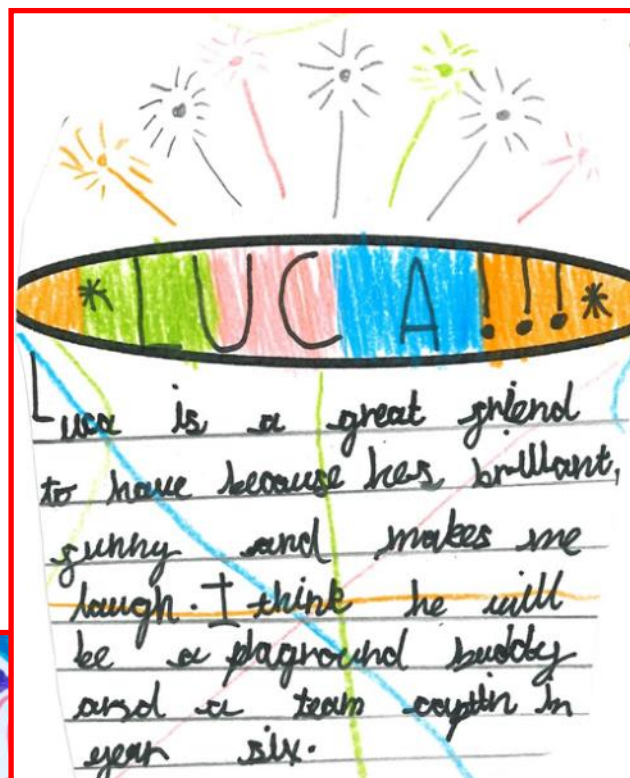 * LUCA!!! *
Luca is a great friend
to have because hes brilliant,
funny and makes me
laugh. I think he will
be a plaground buddy
and a team captin in
year six.